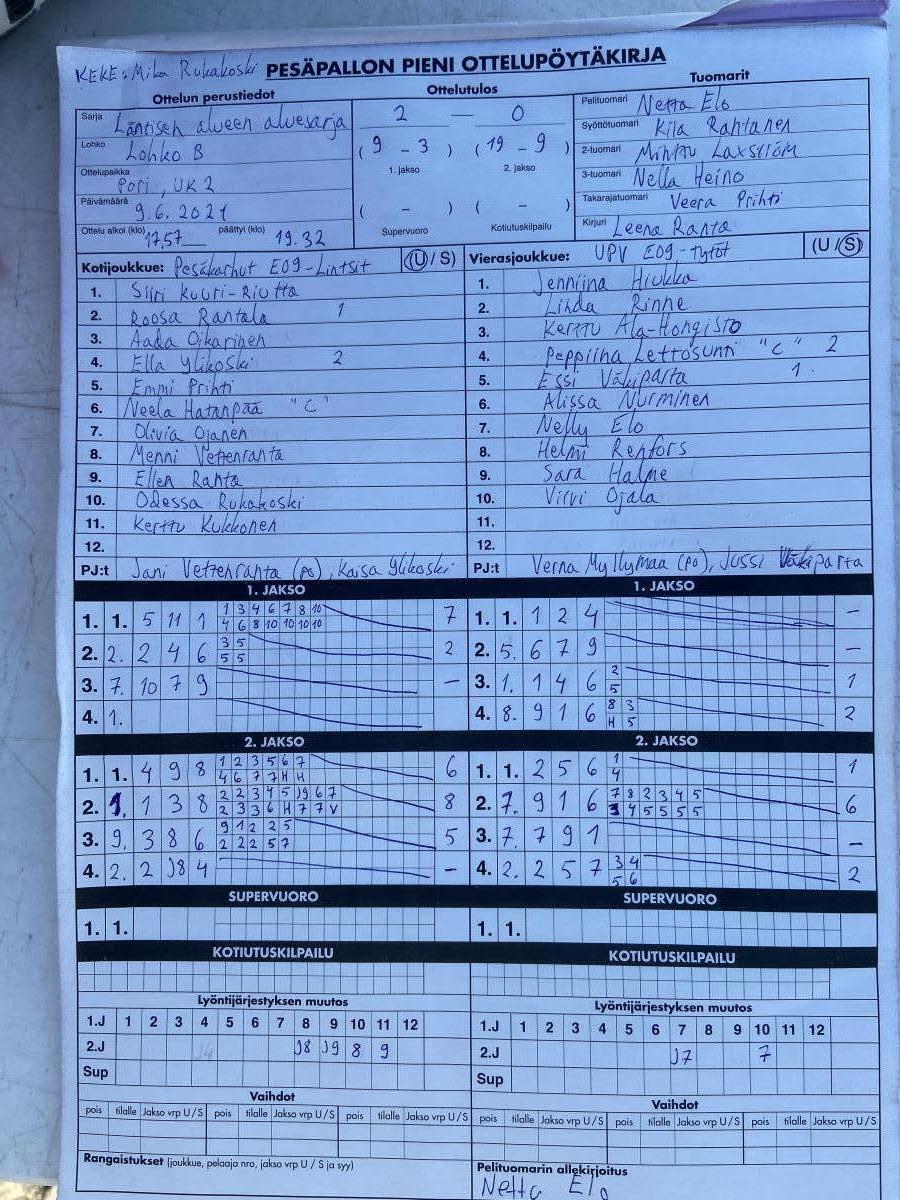 KEKE: Mika Rukakoski PESÄPALLON PIENI OTTELUPÖYTÄKIRJA
Ottelun perustiedot
Sarja Läntisen alueen aluesarja
Lohko Lohko B
Ottelupaikka Pori, UK 2
Päivämäärä 9.6.2021
Ottelu alkoi (klo) 17.57 päättyi (klo) 19.32
Ottelutulos
2 — 0
( 9 - 3 ) ( 19 - 9 )
1. jakso 2. jakso
( - ) ( - )
Supervuoro Kotiutuskilpailu
Tuomarit
Pelituomari Netta Elo
Syöttötuomari Kiia Rantanen
2-tuomari Minttu Laxström
3-tuomari Nella Heino
Takarajatuomari Veera Prihti
Kirjuri Leena Ranta
Kotijoukkue: Pesäkarhut E09-Lintsit (U / S)
1. Siiri Kuuri-Riutta
2. Roosa Rantala 1
3. Aada Oikarinen
4. Ella Ylikoski 2
5. Emmi Prihti
6. Neela Hatanpää "C"
7. Olivia Ojanen
8. Menni Vettenranta
9. Ellen Ranta
10. Odessa Rukakoski
11. Kerttu Kukkonen
12.
PJ:t Jani Vettenranta (pj), Kaisa Ylikoski
Vierasjoukkue: UPV E09-Tytöt (U / S)
1. Jenniina Hiukka
2. Linda Rinne
3. Kerttu Ala-Hongisto
4. Peppiina Lettosunti "C" 2
5. Essi Väkiparta 1.
6. Alissa Nurminen
7. Nelly Elo
8. Helmi Renfors
9. Sara Halme
10. Virvi Ojala
11.
12.
PJ:t Verna Myllymaa (pj), Jussi Väkiparta
1. JAKSO
1. 1. 5 11 1 1 3 4 6 7 8 10 7
4 6 8 10 10 10 10
2. 2. 2 4 6 3 5 2
5 5
3. 7. 10 7 9 —
4. 1.
1. JAKSO
1. 1. 1 2 4 —
2. 5. 6 7 9 —
3. 1. 1 4 6 2 1
5
4. 8. 9 1 6 8 3 2
H 5
2. JAKSO
1. 1. 4 9 8 1 2 3 5 6 7 6
4 6 7 7 H H
2. 1. 1 3 8 2 2 3 4 5 J9 6 7 8
2 3 3 6 H 7 7 V
3. 9. 3 8 6 9 1 2 2 5 5
2 2 2 5 7
4. 2. 2 J8 4 —
2. JAKSO
1. 1. 2 5 6 1 1
4
2. 7. 9 1 6 7 8 2 3 4 5 6
3 4 5 5 5 5
3. 7. 7 9 1 —
4. 2. 2 5 7 3 4 2
5 6
SUPERVUORO
1. 1.
SUPERVUORO
1. 1.
KOTIUTUSKILPAILU
KOTIUTUSKILPAILU
Lyöntijärjestyksen muutos
1.J 1 2 3 4 5 6 7 8 9 10 11 12
2.J J8 J9 8 9
Sup
Lyöntijärjestyksen muutos
1.J 1 2 3 4 5 6 7 8 9 10 11 12
2.J J7 7
Sup
Vaihdot
pois tilalle Jakso vrp U / S pois tilalle Jakso vrp U / S pois tilalle Jakso vrp U / S
Vaihdot
pois tilalle Jakso vrp U / S pois tilalle Jakso vrp U / S pois tilalle Jakso vrp U / S
Rangaistukset (joukkue, pelaaja nro, jakso vrp U / S ja syy)
Pelituomarin allekirjoitus
Netta Elo